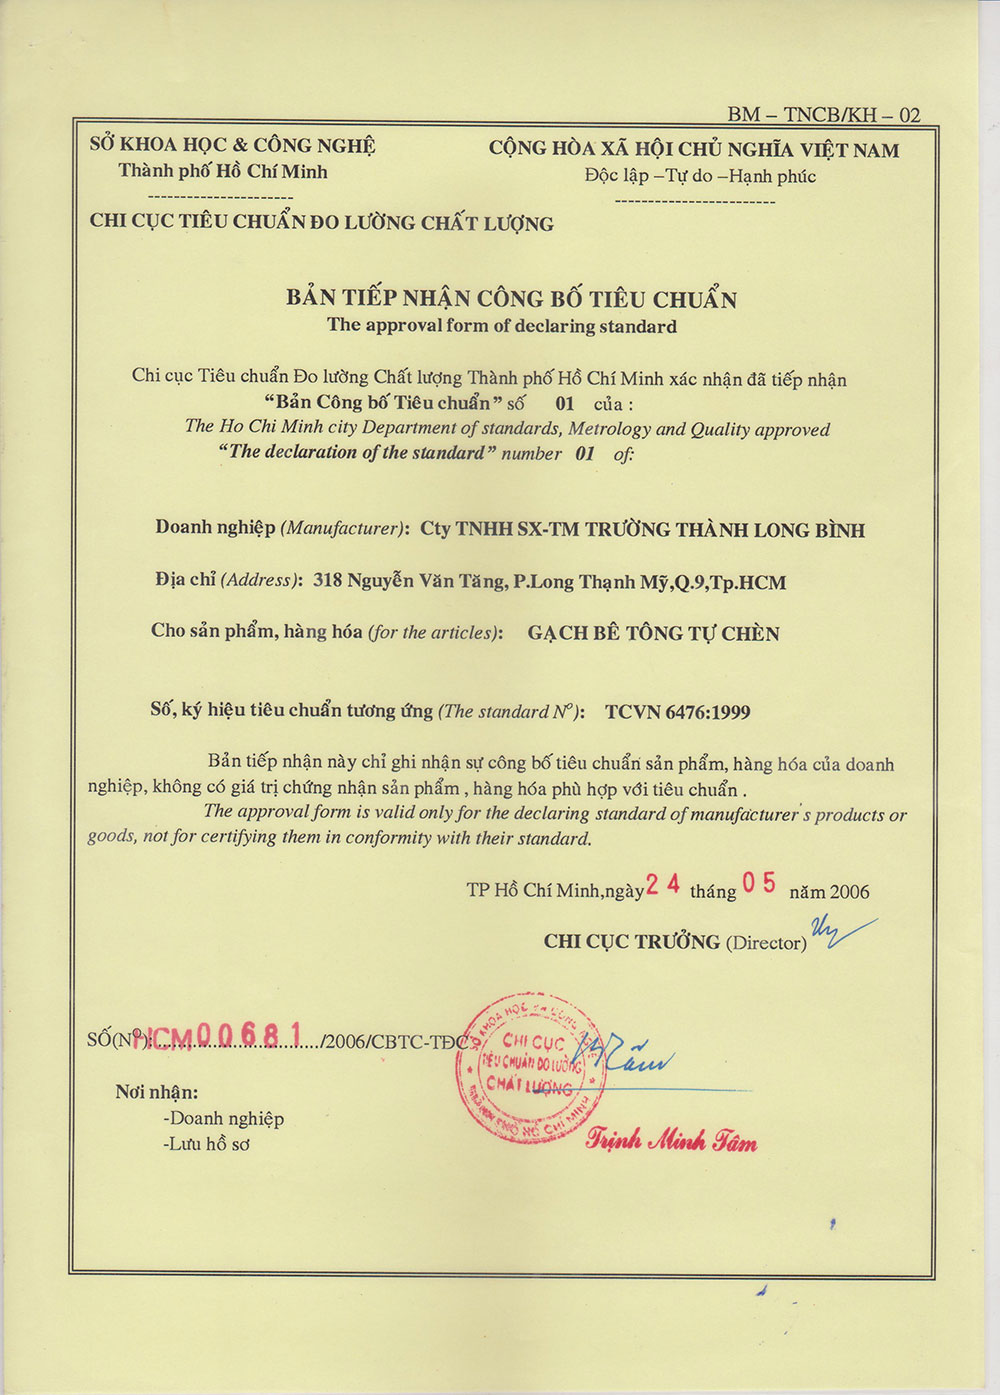 BM – TNCB/KH – 02
SỞ KHOA HỌC & CÔNG NGHỆ
Thành phố Hồ Chí Minh
CỘNG HÒA XÃ HỘI CHỦ NGHĨA VIỆT NAM
Độc lập –Tự do –Hạnh phúc
CHI CỤC TIÊU CHUẨN ĐO LƯỜNG CHẤT LƯỢNG
BẢN TIẾP NHẬN CÔNG BỐ TIÊU CHUẨN
The approval form of declaring standard
Chi cục Tiêu chuẩn Đo lường Chất lượng Thành phố Hồ Chí Minh xác nhận đã tiếp nhận
“Bản Công bố Tiêu chuẩn” số 01 của :
The Ho Chi Minh city Department of standards, Metrology and Quality approved
“The declaration of the standard” number 01 of:
Doanh nghiệp (Manufacturer): Cty TNHH SX-TM TRƯỜNG THÀNH LONG BÌNH
Địa chỉ (Address): 318 Nguyễn Văn Tăng, P.Long Thạnh Mỹ,Q.9,Tp.HCM
Cho sản phẩm, hàng hóa (for the articles): GẠCH BÊ TÔNG TỰ CHÈN
Số, ký hiệu tiêu chuẩn tương ứng (The standard Nº): TCVN 6476:1999
Bản tiếp nhận này chỉ ghi nhận sự công bố tiêu chuẩn sản phẩm, hàng hóa của doanh
nghiệp, không có giá trị chứng nhận sản phẩm , hàng hóa phù hợp với tiêu chuẩn .
The approval form is valid only for the declaring standard of manufacturer's products or
goods, not for certifying them in conformity with their standard.
TP Hồ Chí Minh,ngày 24 tháng 05 năm 2006
CHI CỤC TRƯỞNG (Director)
SỐ(Nº):HCM00681/2006/CBTC-TĐC
SỞ KHOA HỌC VÀ CÔNG NGHỆ
CHI CỤC
TIÊU CHUẨN ĐO LƯỜNG
CHẤT LƯỢNG
THÀNH PHỐ HỒ CHÍ MINH
Nơi nhận:
-Doanh nghiệp
-Lưu hồ sơ
Trịnh Minh Tâm